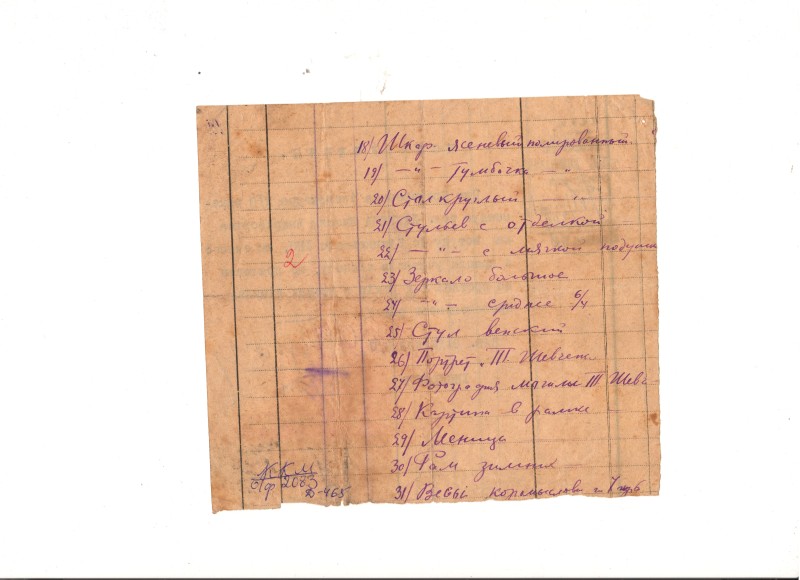 18/ Шкаф ясеневый полированный.
19/ — " — Тумбочка — " —
20/ Стол круглый — " —
21/ Стульев с отделкой
22/ — " — с мягкой подушк
23/ Зеркало большое
24/ — " — средне б/ч
25/ Стул венский
26/ Портрет Т.Г. Шевченк
27/ Фотография могилы Т.Г. Шевч
28/ Картина в рамке
29/
30/ Рам зимних
31/ Весы коромыслов
2
ККМ
2083
Д-465